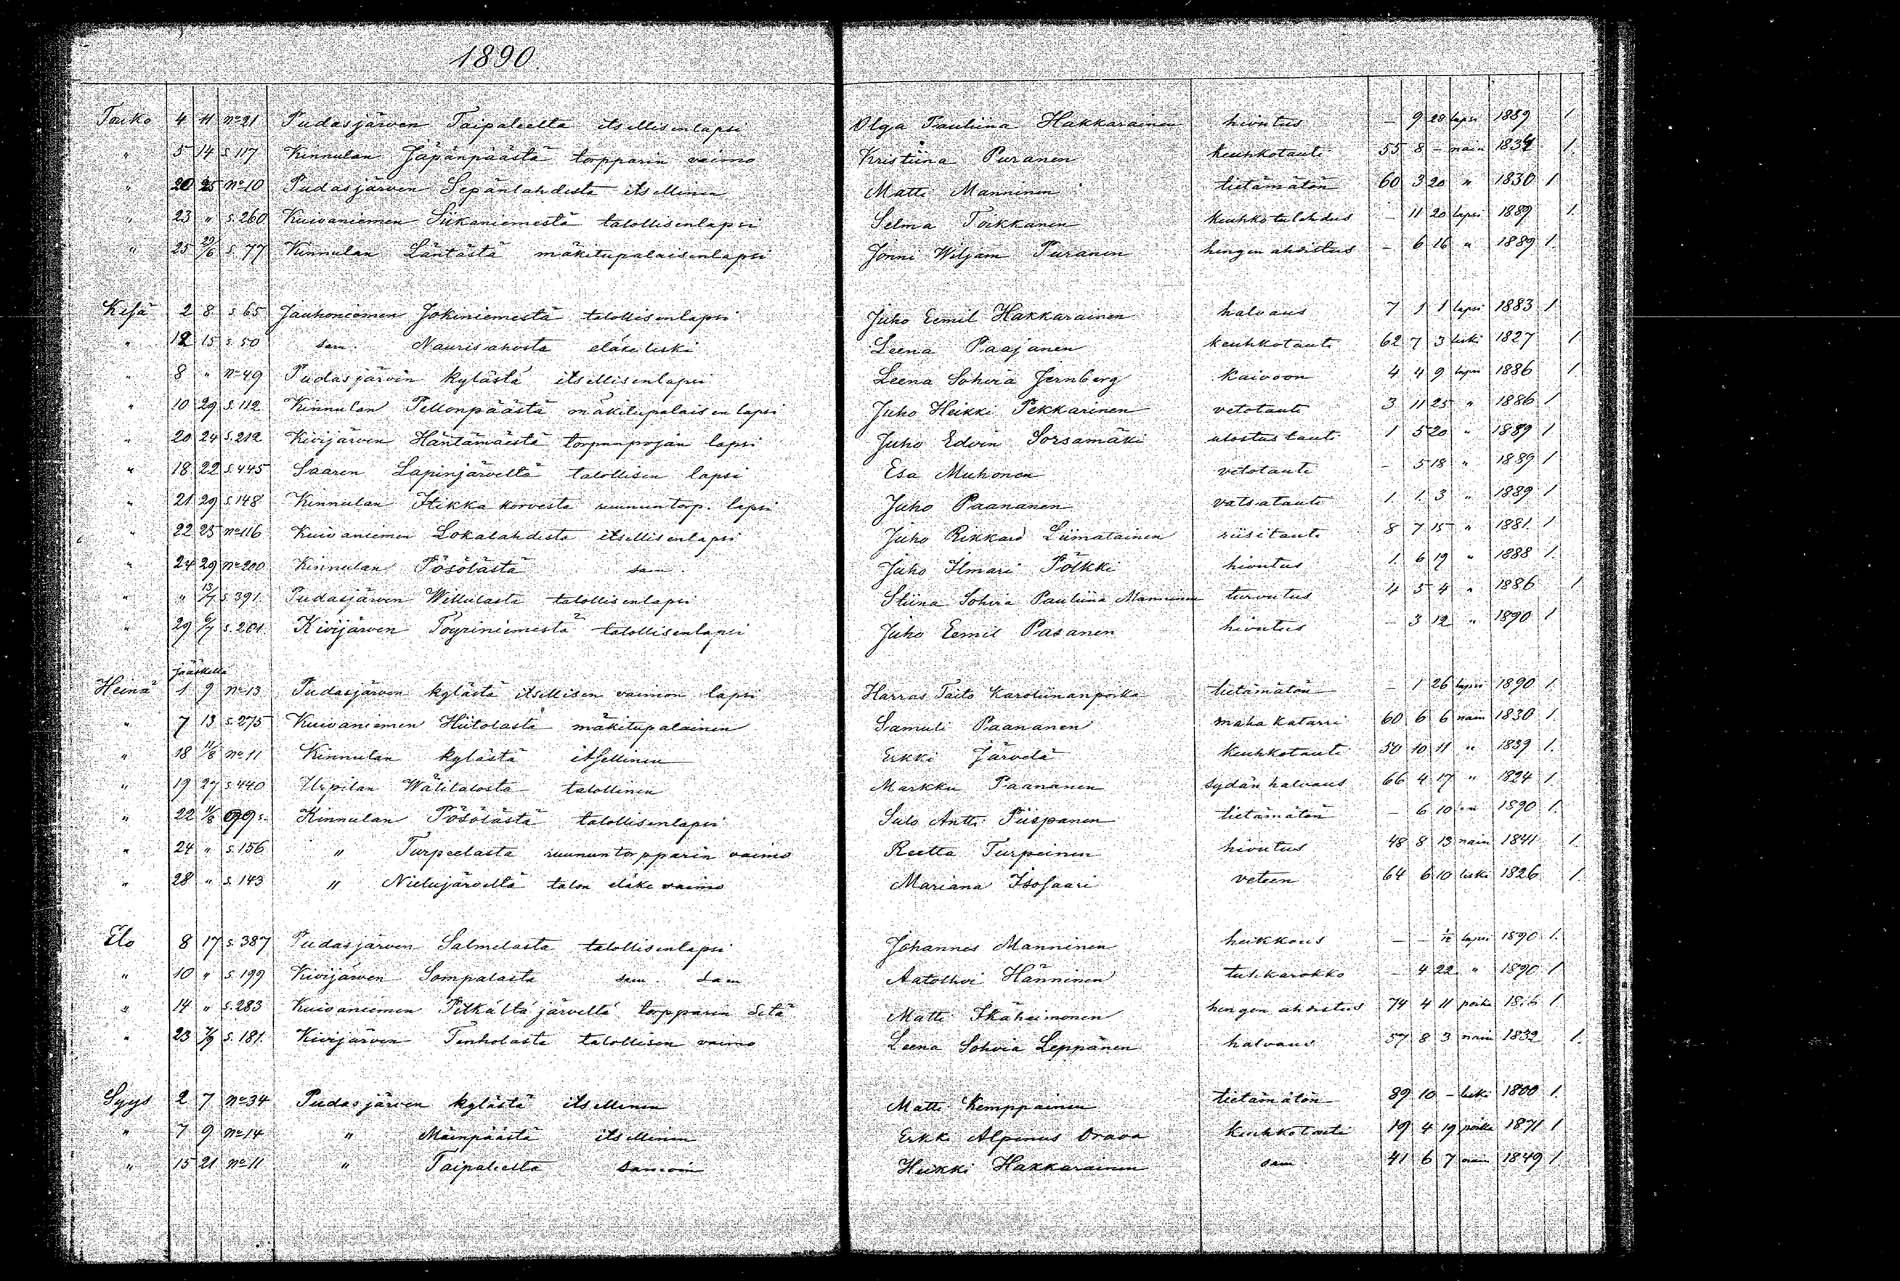 1890.
Touko 4 11 no 21 Pudasjärven Taipaleelta itsellisenlapsi Olga Pauliina Hakkarainen hivutus – 9 28 lapsi 1889 1
" 5 14 s. 117 Kinnulan Jäpänpäästä torpparin vaimo Kristiina Puranen keuhkotauti 55 8 – nain 1834 1.
" 20 25 no 10 Pudasjärven Sepänlahdesta itsellinen Matti Manninen tietämätön 60 3 20 " 1830 1
" 23 " s. 260 Kuivaniemen Siikaniemestä talollisenlapsi Selma Toikkanen keuhkotulehdus – 11 20 lapsi 1889 1.
" 25 29/6 s. 77 Kinnulan Läntästä mäkitupalaisenlapsi Jonni Wiljam Puranen hengen ahdistus – 6 16 " 1889 1.
Kesä 2 8 s. 65 Jauhoniemen Jokiniemestä talollisenlapsi Juho Eemil Hakkarainen halvaus 7 1 1 lapsi 1883 1
" 12 15 s. 50 sam. Naurisahosta eläkeleski Leena Paajanen keuhkotauti 62 7 3 leski 1827 1
" 8 " no 49 Pudasjärvin kylästä itsellisenlapsi Leena Sohvia Jernberg kaivoon 4 4 9 lapsi 1886 1
" 10 29 s. 112 Kinnulan Pellonpäästä mäkitupalaisen lapsi Juho Heikki Pekkarinen vetotauti 3 11 25 " 1886 1
" 20 24 s. 212 Kivijärven Häntämäestä torpanpojan lapsi Juho Edvin Sorsamäki ulostustauti 1 5 20 " 1889 1
" 18 22 s. 445 Saaren Lapinjärveltä talollisen lapsi Esa Muhonen vetotauti – 5 18 " 1889 1
" 21 29 s. 148 Kinnulan Hikka korvesta ruununtorp. lapsi Juho Paananen vatsatauti 1 1. 3 " 1889 1
" 22 25 no 116 Kuivaniemen Lokalahdesta itsellisenlapsi Juho Rikkard Liimatainen riisitauti 8 7 15 " 1881. 1
" 24 29 no 200 Kinnulan Pösölästä sam. Juho Ilmari Pölkki hivutus 1. 6 19 " 1888 1.
" " 13/7 s. 391. Pudasjärven Willilasta talollisenlapsi Stiina Sohvia Pauliina Manninen turvutus 4 5 4 " 1886 1
" 29 6/7 s. 201 Kivijärven Töyriniemestä talollisenlapsi Juho Eemil Pasanen hivutus – 3 12 " 1890 1
Jääskellä
Heinä 1 9 no 13 Pudasjärven kylästä itsellisen vaimon lapsi Harras Taito Karoliinanpoika tietämätön – 1 26 lapsi 1890 1.
" 7 13 s. 275 Kuivaniemen Hiitolasta mäkitupalainen Samuli Paananen maha katarri 60 6 6 nain 1830 1.
" 18 11/8 no 11 Kinnulan kylästä itsellinen Erkki Järvelä keuhkotauti 50 10 11 " 1839 1.
" 19 27 s. 440 Urpilan Wälitalosta talollinen Markku Paananen sydän halvaus 66 4 17 " 1824 1.
" 22 11/8 Kinnulan Pösölästä talollisenlapsi Sulo Antti Piispanen tietämätön – 6 10 1890 1.
" 24 " s. 156 " Turpeelasta ruununtorpparin vaimo Reetta Turpeinen hivutus 48 8 13 nain 1841 1.
" 28 " s. 143 " Nielujärveltä talon eläke vaimo Mariana Isosaari veteen 64 6 10 leski 1826 1.
Elo 8 17 s. 387 Pudasjärven Salmelasta talollisenlapsi Johannes Manninen heikkous – – 1/12 lapsi 1890 1.
" 10 " s. 199 Kivijärven Sompalasta sam. sam Aatolhvi Hänninen tulikarokko – 4 22 " 1890 1
" 14 " s. 283 Kuivaniemen Pitkältä järveltä torpparin setä Matti Ikäheimonen hengen ahdistus 74 4 11 poika 1816 1
" 23 7/9 s. 181. Kivijärven Tenholasta talollisen vaimo Leena Sohvia Leppänen halvaus 57 8 3 nain 1832 1.
Syys 2 7 no 34 Pudasjärven kylästä itsellinen Matti Kemppainen tietämätön 89 10 – leski 1800 1.
" 7 9 no 14 " Mäinpäästä itsellinen Erkki Alpinus Orava keuhkotauti 19 4 19 poika 1871 1
" 15 21 no 11 " Taipaleelta samoin Heikki Hakkarainen sam. 41 6 7 nain 1849 1